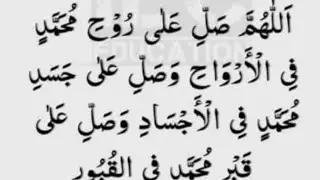 اَللّٰهُمَّ صَلِّ عَلٰى رُوْحِ مُحَمَّدٍ
فِي الْأَرْوَاحِ وَصَلِّ عَلٰى جَسَدِ
مُحَمَّدٍ فِي الْأَجْسَادِ وَصَلِّ عَلٰى
قَبْرِ مُحَمَّدٍ فِي الْقُبُورِ
EDUCATION